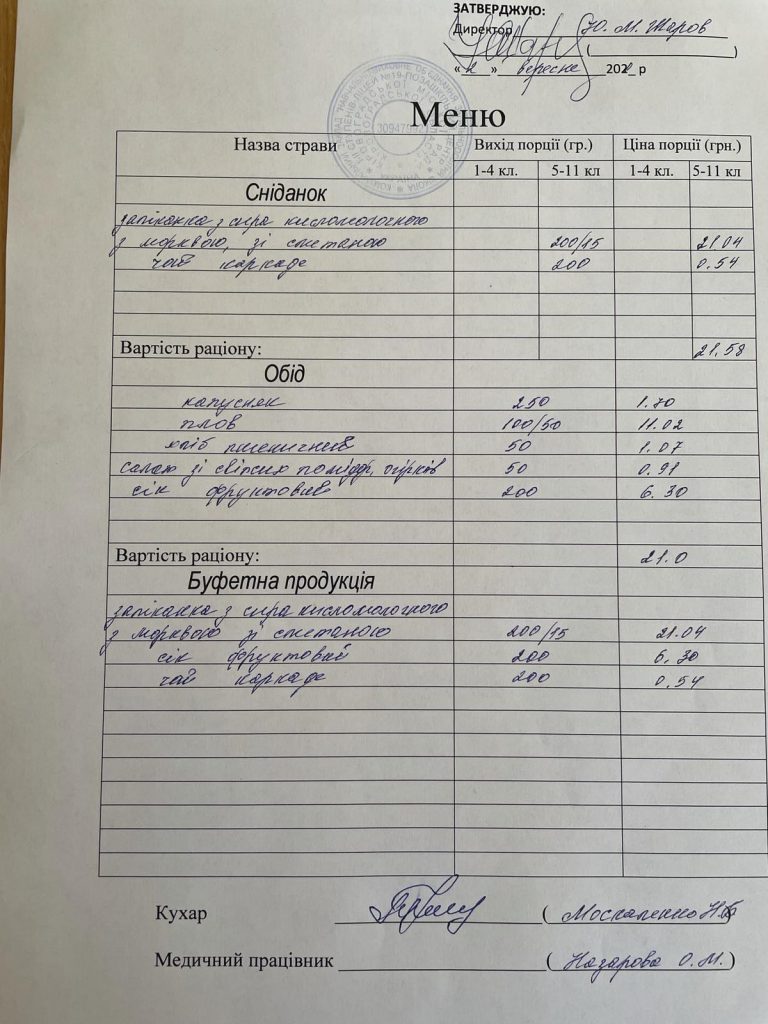 ЗАТВЕРДЖУЮ:
Директор Ю. М. Жаров
( )
« 2 » вересня 202 р
30947592
УКРАЇНА
Меню
Назва страви Вихід порції (гр.) Ціна порції (грн.)
1-4 кл. 5-11 кл 1-4 кл. 5-11 кл
Сніданок
запіканка з сира кисломолочного
з морквою, зі сметаною 200/15 21.04
чай каркаде 200 0.54
Вартість раціону: 21.58
Обід
капусняк 250 1.70
плов 100/50 11.02
хліб пшеничний 50 1.07
салат зі свіжих помідр, огірків 50 0.91
сік фруктовий 200 6.30
Вартість раціону: 21.0
Буфетна продукція
запіканка з сира кисломолочного
з морквою зі сметаною 200/15 21.04
сік фруктовий 200 6.30
чай каркаде 200 0.54
Кухар ( Москаленко Н.Б )
Медичний працівник ( Назарова О.М. )